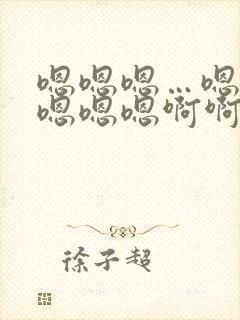 嗯嗯嗯…嗯
嗯嗯嗯啊啊
徐子超